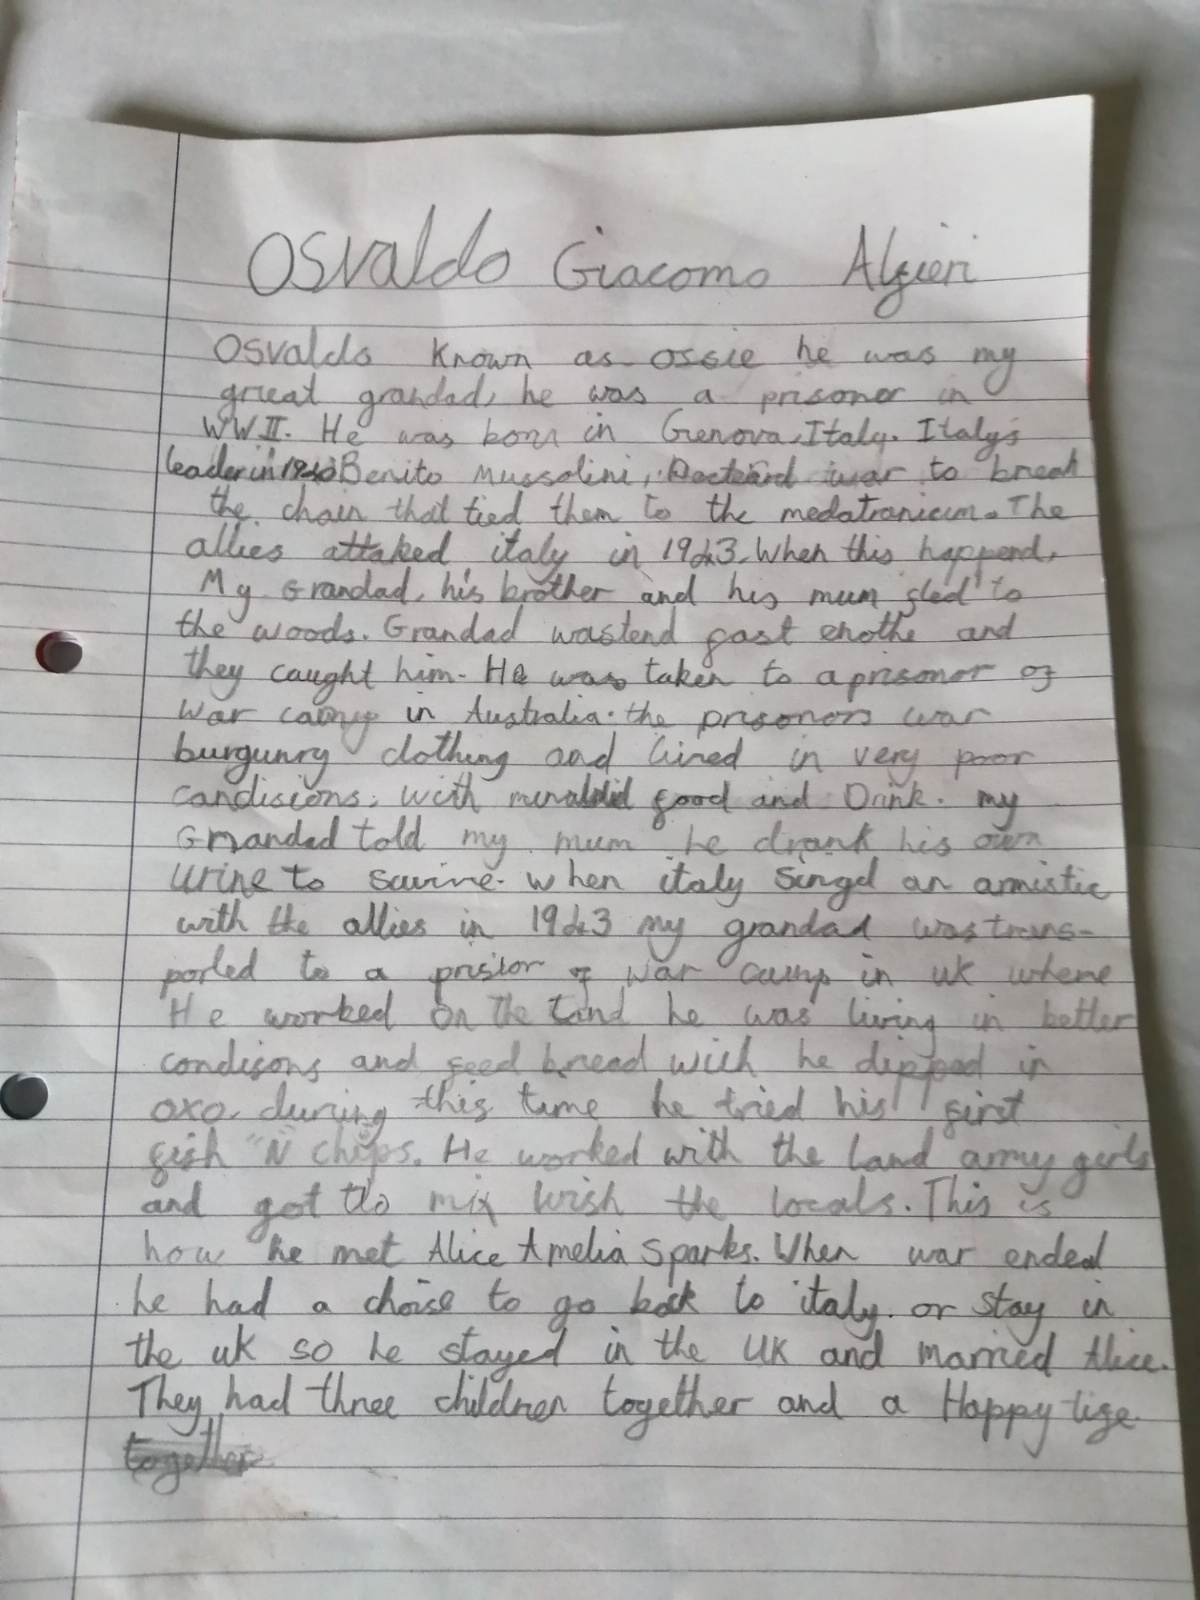 Osvaldo Giacomo Algieri
Osvaldo Known as Ossie he was my
great grandad, he was a prisoner in
WWII. He was born in Genova, Italy. Italy's
leader in 1940 Benito Mussolini, war to break
the chain that tied them to the medatranieum. The
allies attaked italy in 1943. When this happend,
My Grandad, his brother and his mum fled to
the woods. Grandad wastend fast enothe and
they caught him. He was taken to a prisonor of
War camp in Australia. the prisonors war
burgunry clothing and lived in very poor
candisions. with food and Drink. my
Grandad told my mum he drank his own
urine to savive. when italy Singd an armistic
with the allies in 1943 my grandad was trans-
ported to a prisior of war camp in uk where
He worked on the land he was living in better
condisons and feed bread wich he dipped in
oxo. during this time he tried his first
fish "N" chips. He worked with the land army girls
and got to mix wish the locals. This is
how he met Alice Amelia Sparks. When war ended
he had a choise to go back to italy. or stay in
the uk so he stayed in the UK and married Alice.
They had three children together and a Happy life
together